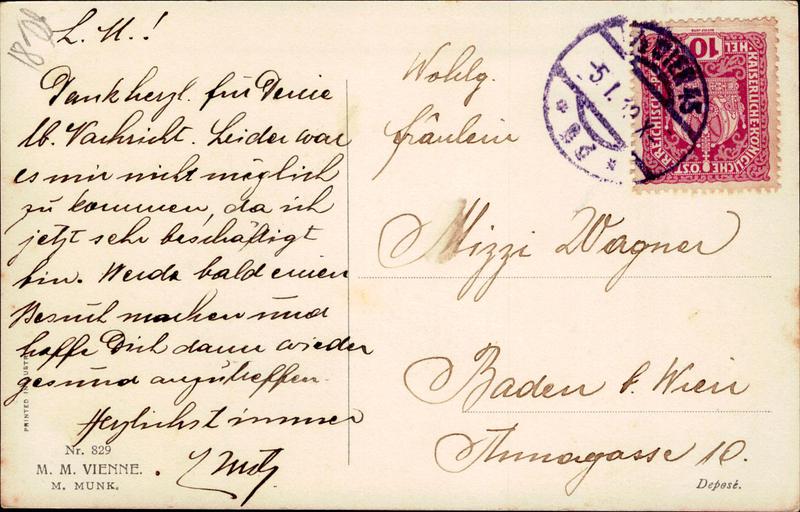 L. M.!
Dank herzl. für Deine
lb. Nachricht. Leider war
es mir nicht möglich
zu kommen, da ich
jetzt sehr beschäftigt
bin. Werde bald einen
Besuch machen und
hoffe Dich dann wieder
gesund anzutreffen.
Herzlichst immer
PRINTED IN AUSTRIA
Nr. 829
M. M. VIENNE.
M. MUNK.
Wohlg.
Fräulein
Mizzi Wagner
Baden b. Wien
Annagasse 10.
Depost.
WIEN
5.I.
KAISERLICHE KÖNIGLICHE ÖSTERREICHISCHE POST
10 HELLER